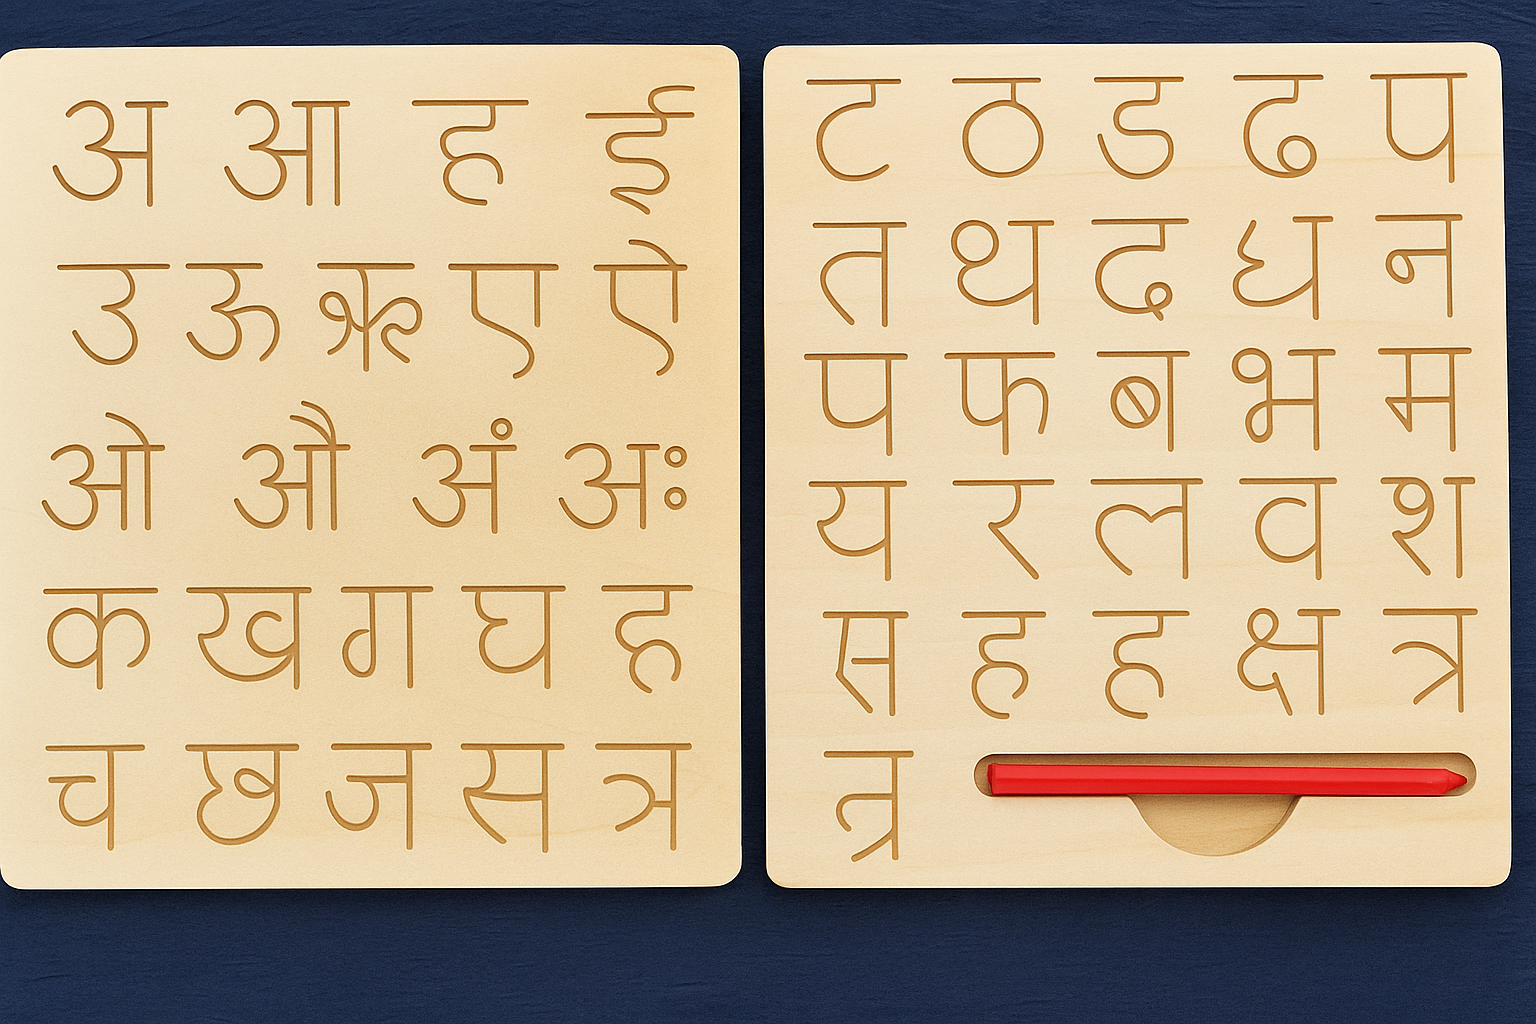 अ आ ह ई
उ ऊ ऋ ए ऐ
ओ औ अं अः
क ख ग घ ह
च छ ज स त्र
ट ठ ड ढ प
त थ द ध न
प फ ब भ म
य र ल व श
स ह ह क्ष त्र
त्र